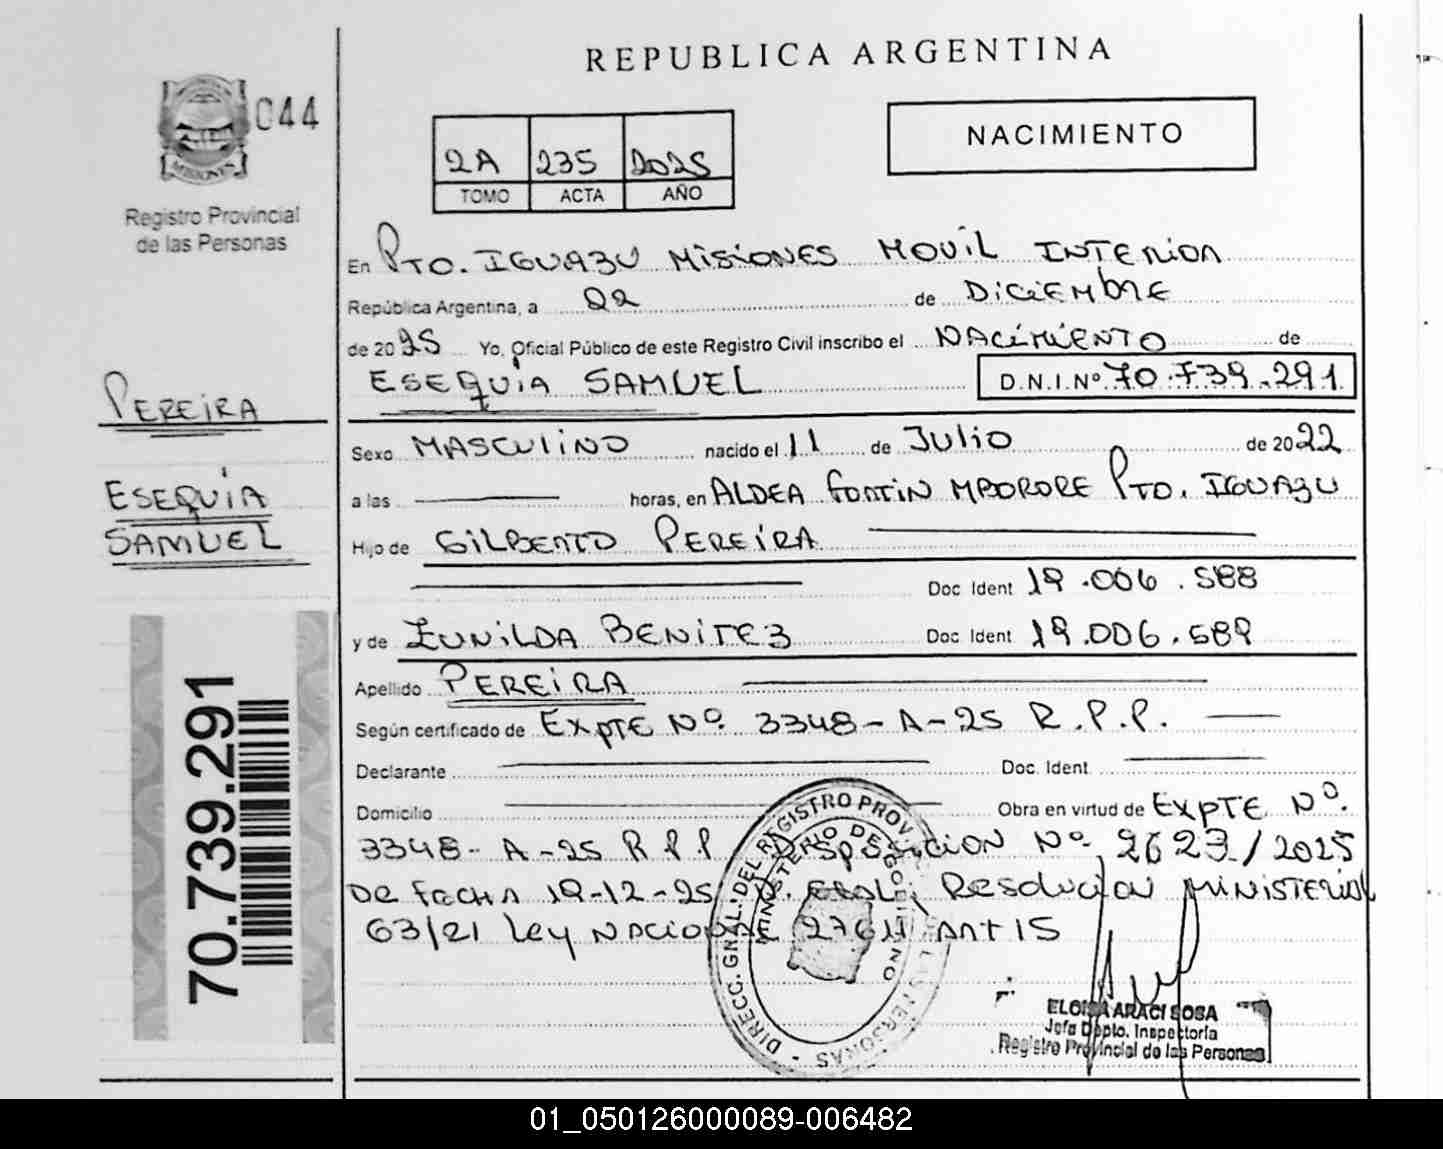 REPUBLICA ARGENTINA
044
NACIMIENTO
2A 235 2025
TOMO ACTA AÑO
MISIONES
Registro Provincial
de las Personas
En Pto. IGUAZU MISIONES MOVIL INTERIOR
República Argentina, a 22 de DICIEMBRE
de 2025 Yo, Oficial Público de este Registro Civil inscribo el NACIMIENTO de
ESEQUIA SAMUEL D.N.I.Nº 70.739.291
PEREIRA
ESEQUIA
SAMUEL
Sexo MASCULINO nacido el 11 de JULIO de 2022
a las horas, en ALDEA FORTIN MBORORE PTO. IGUAZU
Hijo de GILBERTO PEREIRA
Doc. Ident 19.006.588
y de ZUNILDA BENITEZ Doc. Ident 19.006.589
Apellido PEREIRA
Según certificado de EXPTE Nº. 3348-A-25 R.P.P.
Declarante Doc. Ident
Domicilio Obra en virtud de EXPTE Nº.
3348-A-25 R.P.P. Nº 2623/2025
DE FECHA 19-12-25 RESOLUCION MINISTERIAL
63/21 Ley NACIONAL ART 15
70.739.291
DIRECC. GRAL. DEL REGISTRO PROV. LAS PERSONAS
MINISTERIO DE GOBIERNO
ELOISA ARACI SOSA
Jefa Dpto. Inspectoría
Registro Provincial de las Personas
01_050126000089-006482